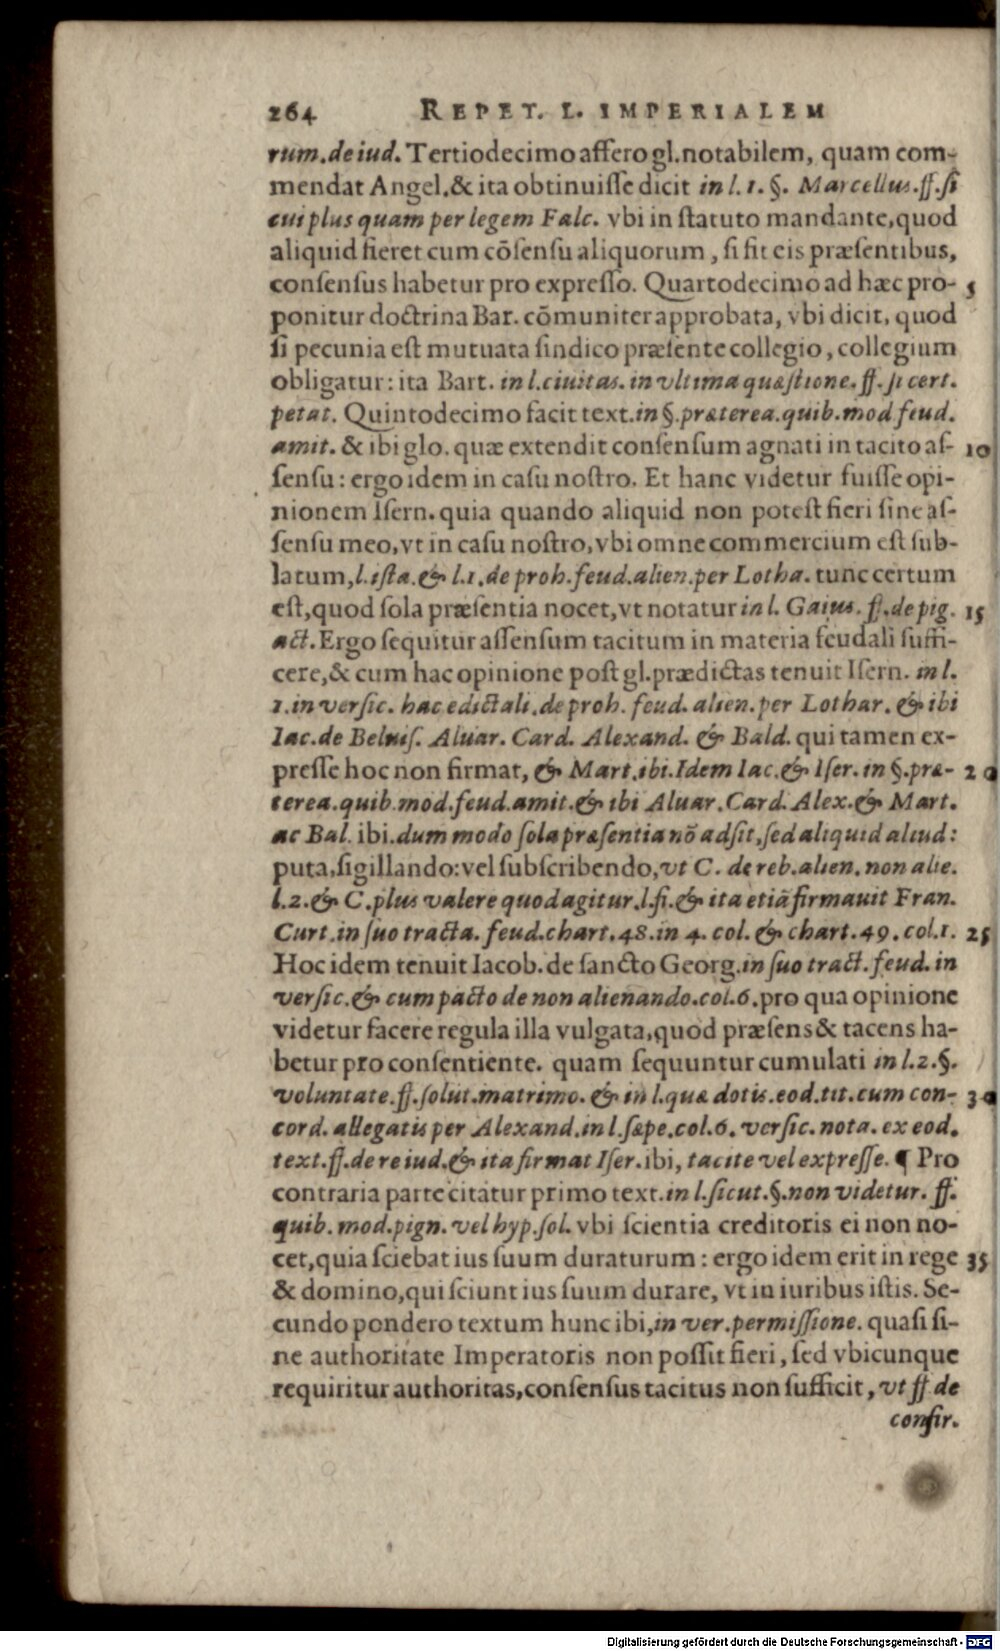 264 REPET. L. IMPERIALEM
rum.de iud. Tertiodecimo affero gl. notabilem, quam com-
mendat Angel. & ita obtinuisse dicit in l. 1. §. Marcellus. ff. si
cui plus quam per legem Falc. vbi in statuto mandante, quod
aliquid fieret cum cõsensu aliquorum, si fit eis præsentibus,
consensus habetur pro expresso. Quartodecimo ad hæc pro- 5
ponitur doctrina Bar. cõmuniter approbata, vbi dicit, quod
si pecunia est mutuata sindico præsente collegio, collegium
obligatur: ita Bart. in l. ciuitas. in vltima quæstione. ff. si cert.
petat. Quintodecimo facit text. in §. præterea. quib. mod feud.
amit. & ibi glo. quæ extendit consensum agnati in tacito as- 10
sensu: ergo idem in casu nostro. Et hanc videtur fuisse opi-
nionem Isern. quia quando aliquid non potest fieri sine as-
sensu meo, vt in casu nostro, vbi omne commercium est sub-
latum, l. ista. & l. 1. de proh. feud. alien. per Lotha. tunc certum
est, quod sola præsentia nocet, vt notatur in l. Gaius. ff. de pig. 15
act. Ergo sequitur assensum tacitum in materia feudali suffi-
cere, & cum hac opinione post gl. prædictas tenuit Isern. in l.
1. in versic. hac edictali. de proh. feud. alien. per Lothar. & ibi
Iac. de Beluis. Aluar. Card. Alexand. & Bald. qui tamen ex-
presse hoc non firmat, & Mart. ibi. Idem Iac. & Iser. in §. præ- 20
terea. quib. mod. feud. amit. & ibi Aluar. Card. Alex. & Mart.
ac Bal. ibi. dum modo sola præsentia nõ adsit, sed aliquid aliud:
puta, sigillando: vel subscribendo, vt C. de reb. alien. non alie.
l. 2. & C. plus valere quod agitur. l. fi. & ita etiã firmauit Fran.
Curt. in suo tracta. feud. chart. 48. in 4. col. & chart. 49. col. 1. 25
Hoc idem tenuit Iacob. de sancto Georg. in suo tract. feud. in
versic. & cum pacto de non alienando. col. 6. pro qua opinione
videtur facere regula illa vulgata, quod præsens & tacens ha-
betur pro consentiente. quam sequuntur cumulati in l. 2. §.
voluntate. ff. solut. matrimo. & in l. quæ dotis. eod. tit. cum con- 30
cord. allegatis per Alexand. in l. sæpe. col. 6. versic. nota. ex eod.
text. ff. de re iud. & ita firmat Iser. ibi, tacite vel expresse. ¶ Pro
contraria parte citatur primo text. in l. sicut. §. non videtur. ff.
quib. mod. pign. vel hyp. sol. vbi scientia creditoris ei non no-
cet, quia sciebat ius suum duraturum: ergo idem erit in rege 35
& domino, qui sciunt ius suum durare, vt in iuribus istis. Se-
cundo pondero textum hunc ibi, in ver. permissione. quasi si-
ne authoritate Imperatoris non possit fieri, sed vbicunque
requiritur authoritas, consensus tacitus non sufficit, vt ff de
confir.
Digitalisierung gefördert durch die Deutsche Forschungsgemeinschaft - DFG